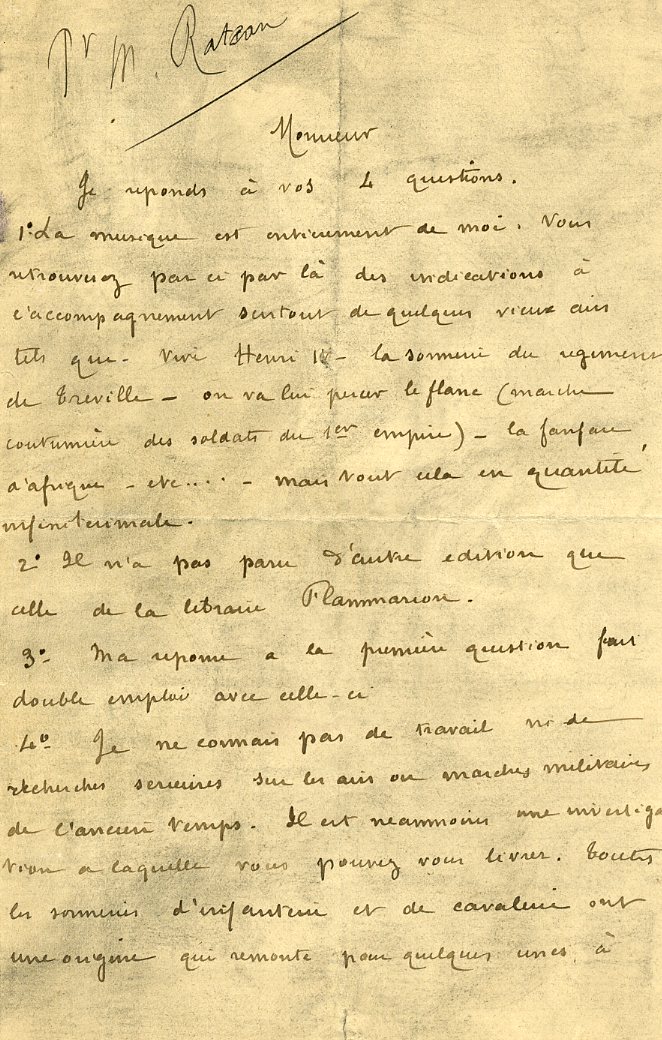 Pr M. Rateau
Monsieur
Je reponds à vos 4 questions.
1º La musique est entierement de moi. Vous
retrouverez par ci par là des indications à
l'accompagnement surtout de quelques vieux airs
tels que - Vive Henri IV - la sonnerie du regiment
de Treville - on va lui percer le flanc (marche
coutumière des soldats du 1er empire) - la fanfare
d'afrique - etc.... - mais tout cela en quantité
infinitesimale.
2º Il n'a pas paru d'autre edition que
celle de la librairie Flammarion.
3º - Ma reponse a la première question fait
double emploi avec celle-ci
4º Je ne connais pas de travail ni de
recherches serieuses sur les airs ou marches militaires
de l'ancien temps. Il est neanmoins une investiga
tion a laquelle vous pouvez vous livrer. Toutes
les sonneries d'infanterie et de cavalerie ont
une origine qui remonte pour quelques unes à